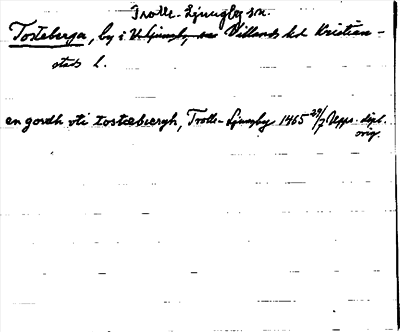 Trolle-Ljungby sn.
Tosteberga, by i V Ljungby sn Villands hd Kristian-
stads l.
en gordh vti tostæbiergh, Trolle-Ljungby 1465 29/7 Upps. dipl.
orig.